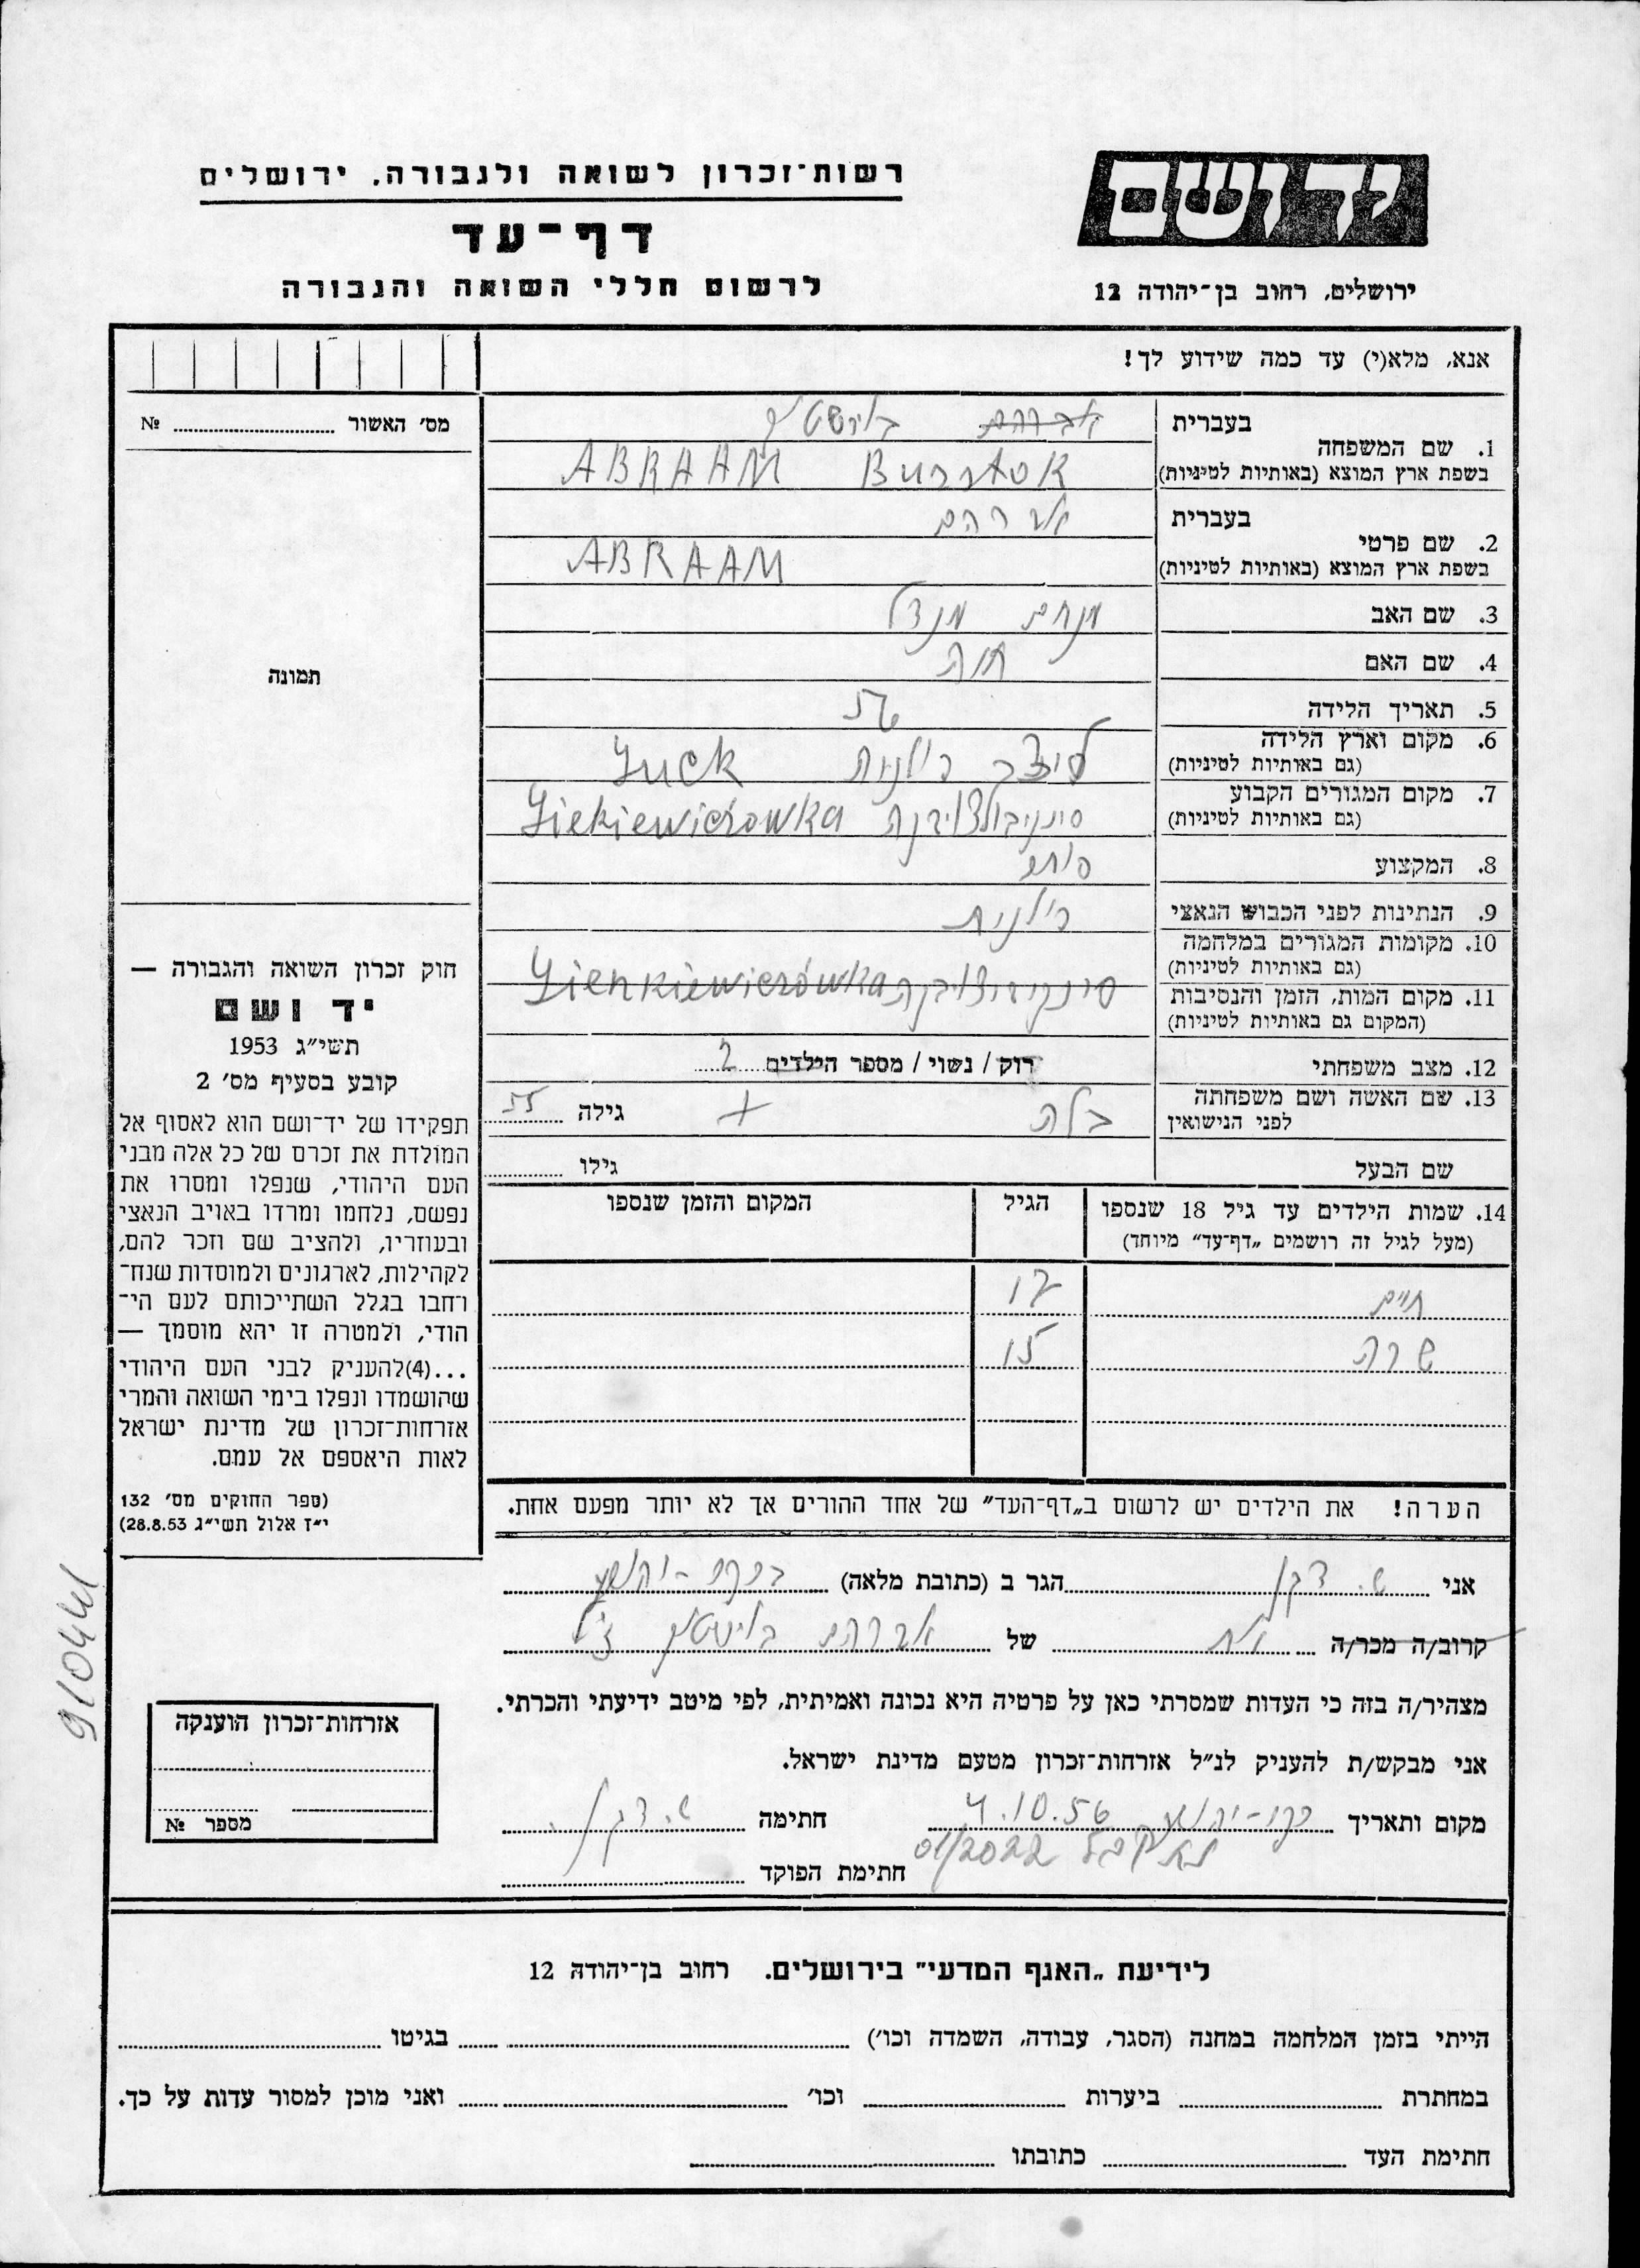 יד ושם
ירושלים, רחוב בן־יהודה 12
רשות־זכרון לשואה ולגבורה, ירושלים
דף־עד
לרשום חללי השואה והגבורה
אנא, מלא(י) עד כמה שידוע לך!
מס׳ האשור № 
תמונה
בעברית אברהם
1. שם המשפחה
בשפת ארץ המוצא (באותיות לטיניות) ABRAAM Bursztok
בעברית אברהם
2. שם פרטי
בשפת ארץ המוצא (באותיות לטיניות) ABRAAM
3. שם האב מנחם מנדל
4. שם האם חוה
5. תאריך הלידה 56
6. מקום וארץ הלידה לוצק פולניה Łuck
(גם באותיות לטיניות)
7. מקום המגורים הקבוע Siekiewiczówka
(גם באותיות לטיניות)
8. המקצוע סוחר
9. הנתינות לפני הכבוש הנאצי פולנית
10. מקומות המגורים במלחמה
(גם באותיות לטיניות)
11. מקום המות, הזמן והנסיבות Sienkiewiczówka
(המקום גם באותיות לטיניות)
12. מצב משפחתי רווק / נשוי / מספר הילדים 2
13. שם האשה ושם משפחתה בלה + גילה 55
לפני הנישואין
שם הבעל גילו
14. שמות הילדים עד גיל 18 שנספו הגיל המקום והזמן שנספו
(מעל לגיל זה רושמים „דף־עד״ מיוחד)
חיים 17
שרה 15
הערה! את הילדים יש לרשום ב„דף־העד״ של אחד ההורים אך לא יותר מפעם אחת.
חוק זכרון השואה והגבורה —
יד ושם
תשי״ג 1953
קובע בסעיף מס׳ 2
תפקידו של יד־ושם הוא לאסוף אל
המולדת את זכרם של כל אלה מבני
העם היהודי, שנפלו ומסרו את
נפשם, נלחמו ומרדו באויב הנאצי
ובעוזריו, ולהציב שם וזכר להם,
לקהילות, לארגונים ולמוסדות שנח־
רחבו בגלל השתייכותם לעם הי־
הודי, ולמטרה זו יהא מוסמך —
...(4)להעניק לבני העם היהודי
שהושמדו ונפלו בימי השואה והמרי
אזרחות־זכרון של מדינת ישראל
לאות היאספם אל עמם.
(ספר החוקים מס׳ 132
י״ז אלול תשי״ג 28.8.53)
אני ש. דגן הגר ב (כתובת מלאה)
קרוב/ה מכר/ה אח של אברהם ז״ל
מצהיר/ה בזה כי העדות שמסרתי כאן על פרטיה היא נכונה ואמיתית, לפי מיטב ידיעתי והכרתי.
אני מבקש/ת להעניק לנ״ל אזרחות־זכרון מטעם מדינת ישראל.
מקום ותאריך 4.10.56 חתימה ש. דגן
01/2022
חתימת הפוקד
אזרחות־זכרון הוענקה
מספר №
לידיעת „האגף המדעי״ בירושלים. רחוב בן־יהודה 12
הייתי בזמן המלחמה במחנה (הסגר, עבודה, השמדה וכו׳) בגיטו
במחתרת ביערות וכו׳ ואני מוכן למסור עדות על כך.
חתימת העד כתובתו